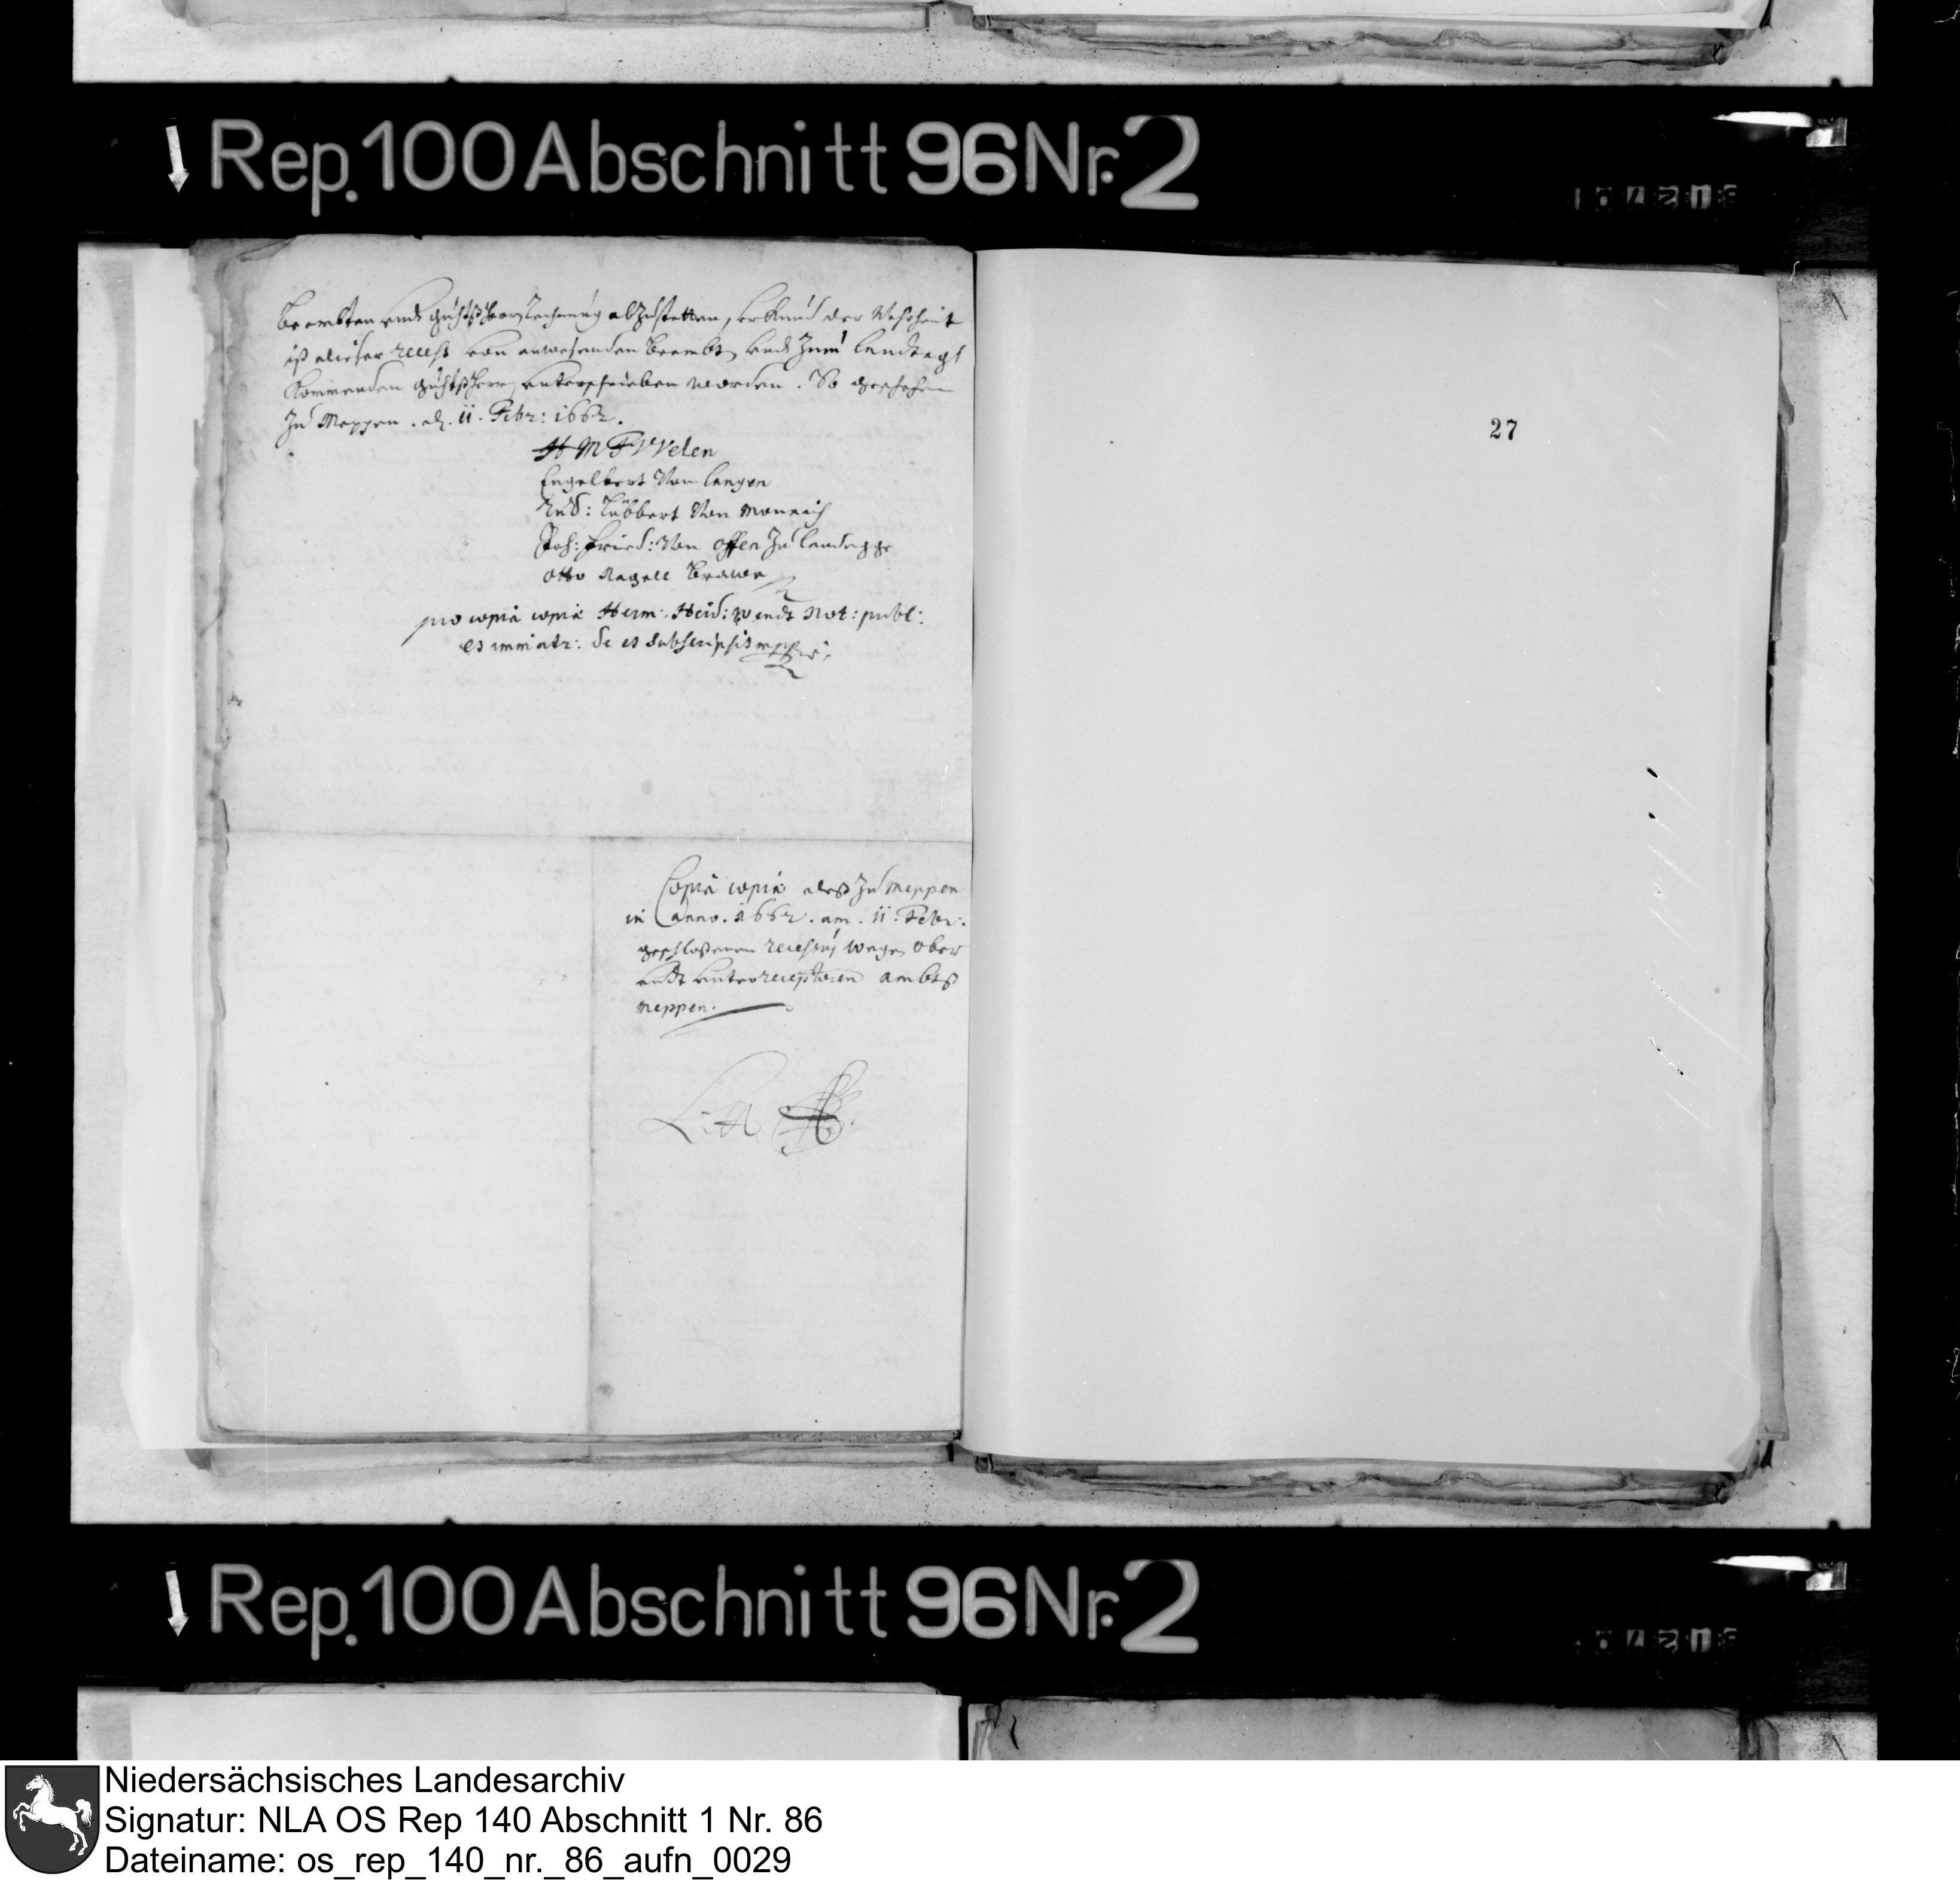 Rep. 100 Abschnitt 96 Nr. 2
Beembten undt gudtsherrn Rechnung abzustatten, Uhrkundt der Wahrheit
ist dieser recess von anwesenden Beembten undt zum landtags
kommenden gudtsherrn unterschrieben worden. So geschehen
Zu Meppen. d. 11. Febr: 1662.
H M F V Velen
Engelbert Von langen
Rud: Lübbert Von Monnich
Joh: Fried: Von Offen Zu landegge
Otto Nagell Brawe
pro copia copiæ Herm: Heid: Wendt Not: publ:
et immatr: sc et subscripsit mppria
Copia copiæ deß Zu Meppen
in anno. 1662. am. 11. Febr:
geschloßenen recessus wegen ober
undt unterrecepturen ambts
Meppen.
27
Rep. 100 Abschnitt 96 Nr. 2
Niedersächsisches Landesarchiv
Signatur: NLA OS Rep 140 Abschnitt 1 Nr. 86
Dateiname: os_rep_140_nr._86_aufn_0029